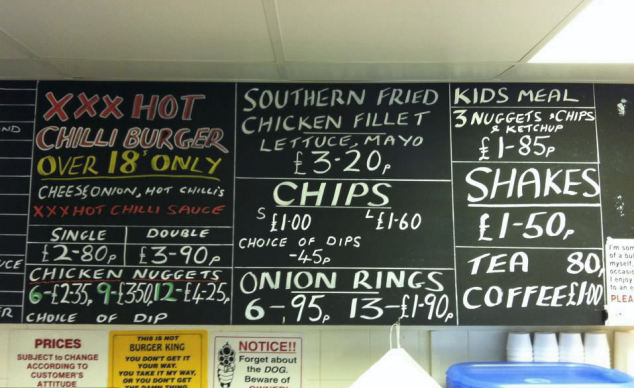 ND
UCE
ER
XXX HOT
CHILLI BURGER
OVER 18's ONLY
CHEESE & ONION, HOT CHILLI'S
XXX HOT CHILLI SAUCE
SINGLE DOUBLE
£2-80p £3-90p
CHICKEN NUGGETS
6-£2.35p 9-£3.50p 12-£4.25p
CHOICE OF DIP
SOUTHERN FRIED
CHICKEN FILLET
LETTUCE, MAYO
£3-20p
CHIPS
S £1.00 L £1.60
CHOICE OF DIPS
-45p
ONION RINGS
6-.95p 13-£1-90p
KIDS MEAL
3 NUGGETS & CHIPS
& KETCHUP
£1-85p
SHAKES
£1-50p
TEA 80p
COFFEE £1.00
I'm som
of a bu
myself.
occasio
I enjoy
to an e
PLEA
PRICES
SUBJECT to CHANGE
ACCORDING TO
CUSTOMER'S
ATTITUDE
THIS IS NOT
BURGER KING
YOU DON'T GET IT
YOUR WAY.
YOU TAKE IT MY WAY,
OR YOU DON'T GET
THE DAMN THING
NOTICE!!
Forget about
the DOG.
Beware of